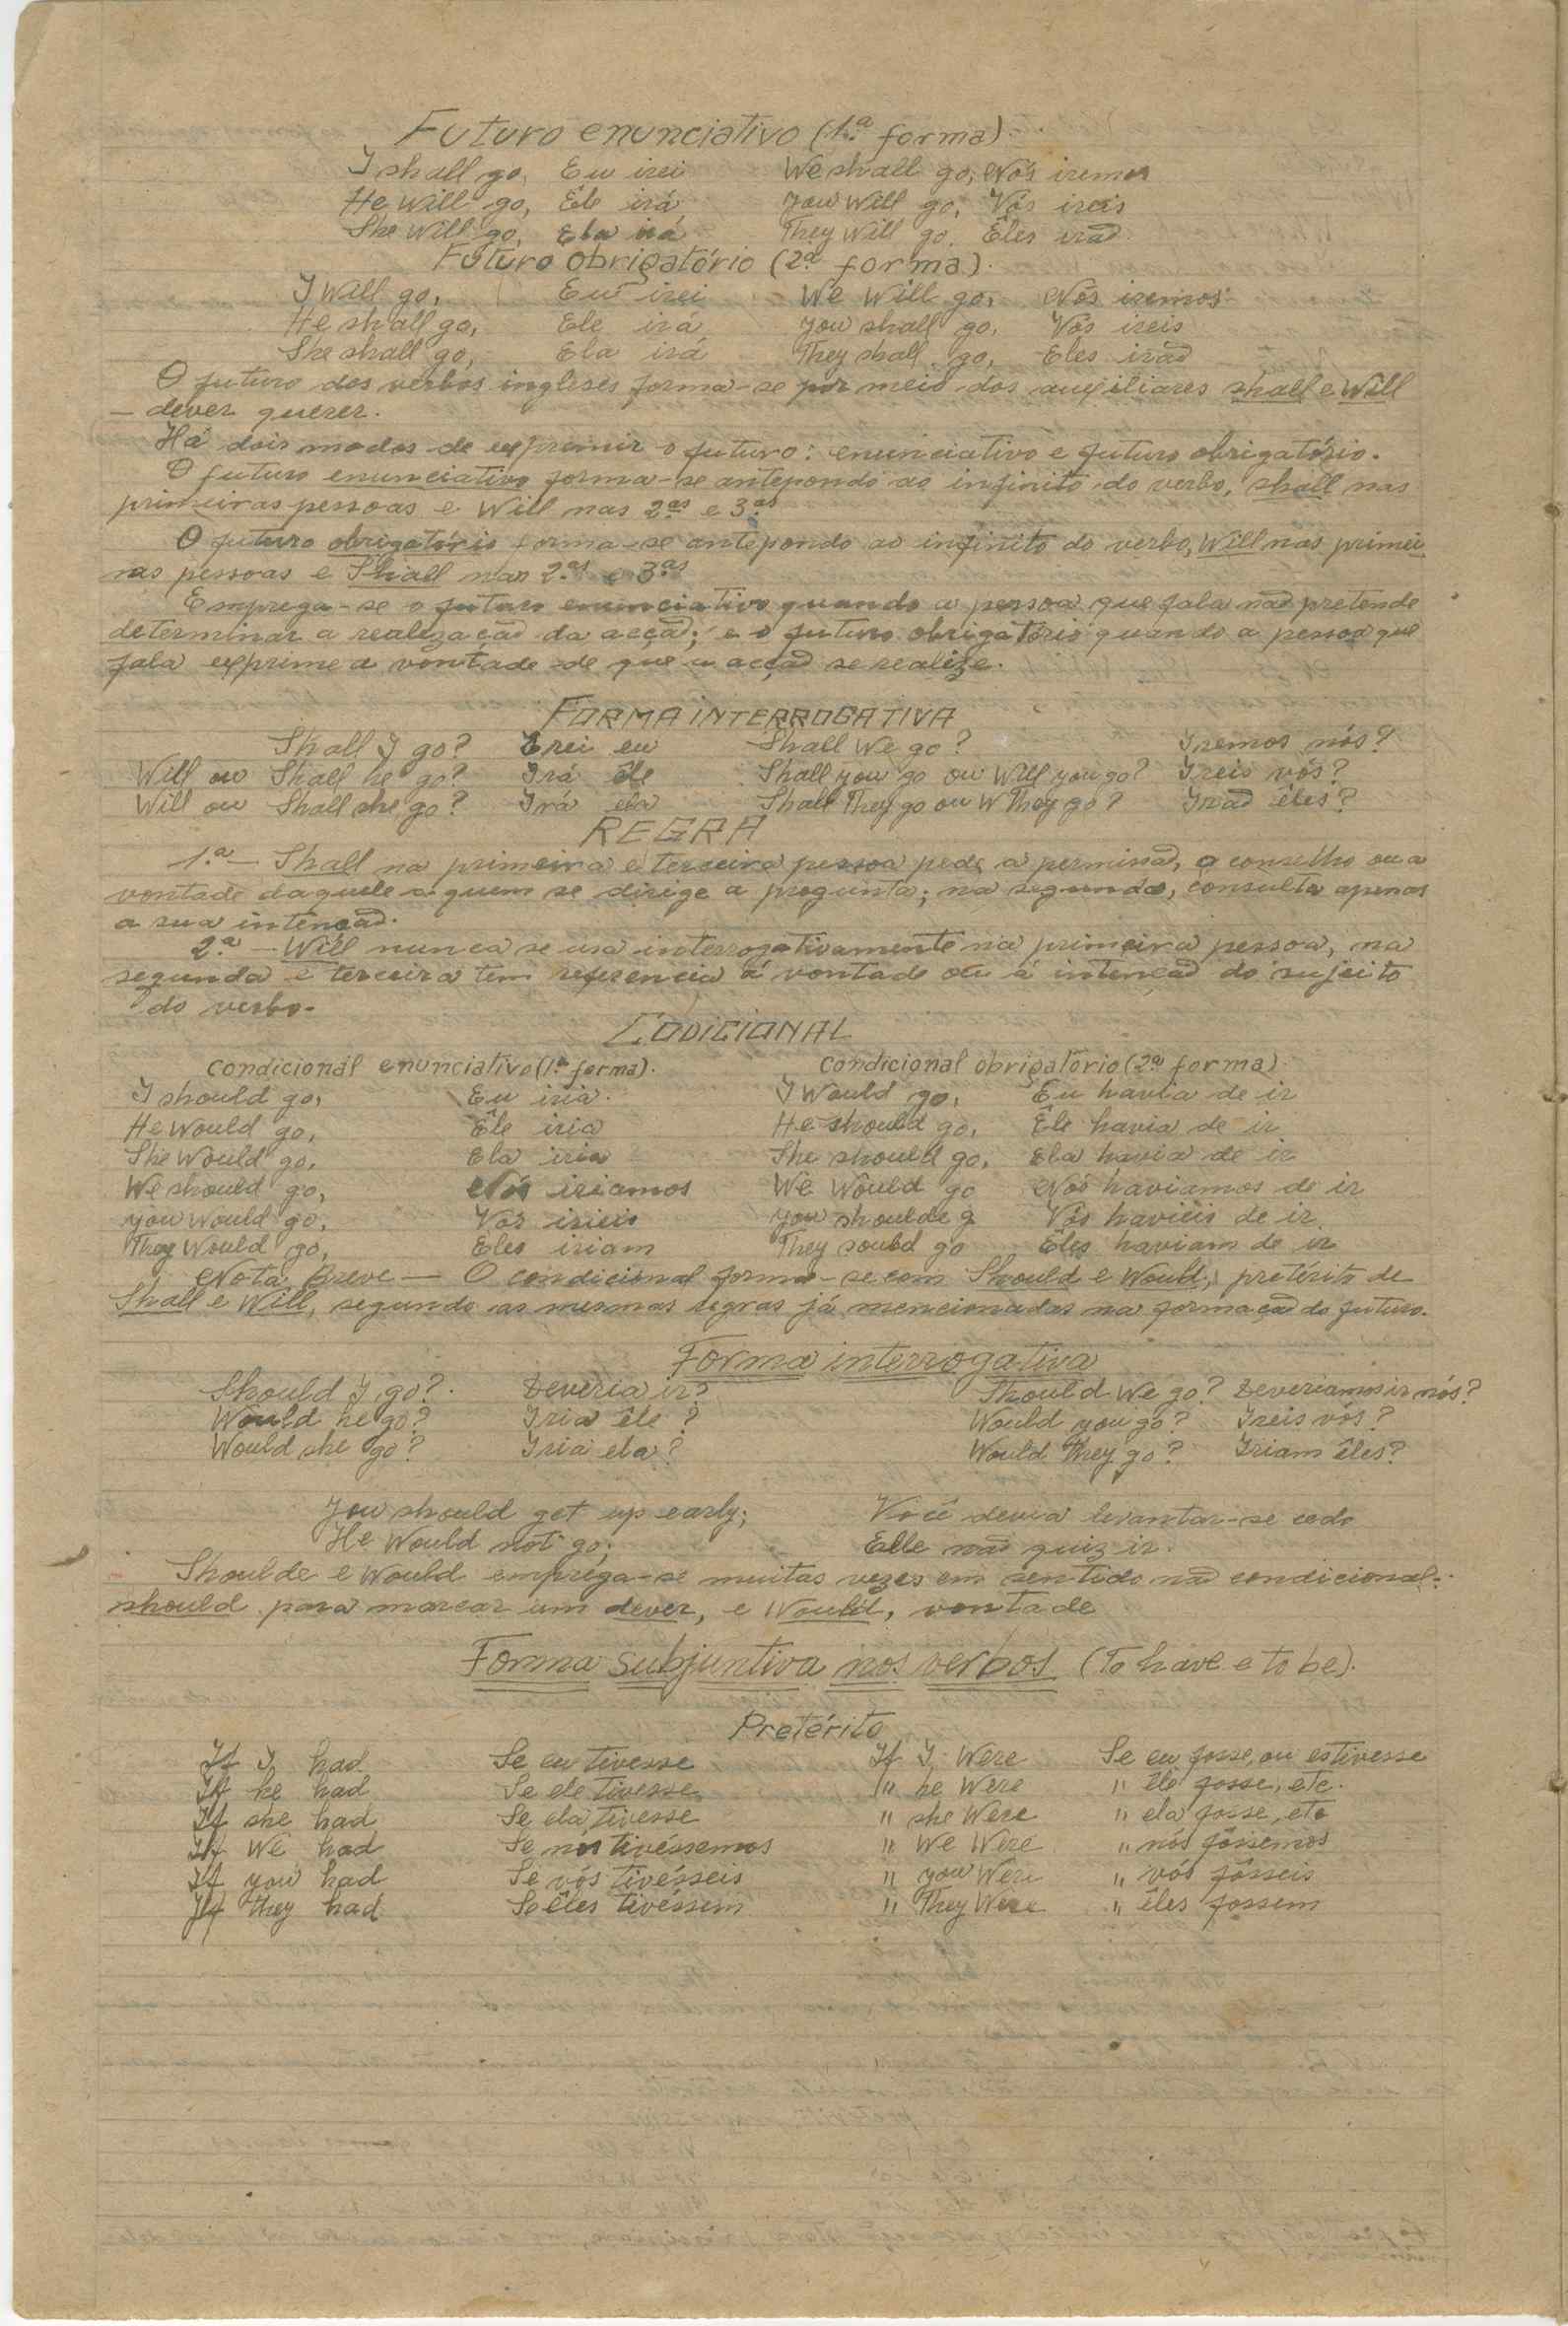 Futuro enunciativo (1.ª forma).
I shall go, Eu irei We shall go, Nós iremos
He Will go, Êle irá You Will go, Vós ireis
She Will go, Ela irá They Will go, Êles irão
Futuro obrigatório (2.ª forma).
I Will go, Eu irei We Will go, Nós iremos
He shall go, Ele irá You shall go, Vós ireis
She shall go, Ela irá They shall go, Eles irão
O futuro dos verbos ingleses forma-se por meio dos auxiliares shall e Will
— dever querer.
Há dois modos de exprimir o futuro: enunciativo e futuro obrigatório.
O futuro enunciativo forma-se antepondo ao infinito do verbo, shall nas
primeiras pessoas e Will nas 2.as e 3.as
O futuro obrigatório forma-se antepondo ao infinito do verbo, Will nas primei
ras pessoas e Shall nas 2.as e 3.as
Emprega-se o futuro enunciativo quando a pessoa que fala não pretende
determinar a realização da acção; e o futuro obrigatório quando a pessoa que
fala exprime a vontade de que a acção se realize.
FORMA INTERROGATIVA
Shall I go? Irei eu Shall We go? Iremos nós?
Will ou Shall he go? Irá êle Shall you go ou Will you go? Ireis vós?
Will ou Shall she go? Irá ela Shall They go ou W They go? Irão êles?
REGRA
1.ª — Shall na primeira e terceira pessoa pede a permisão, o conselho ou a
vontade daquele a quem se dirige a pregunta; na segunda, consulta apenas
a sua intenção.
2.ª — Will nunca se usa interrogativamente na primeira pessoa, na
segunda e terceira tem referencia á vontade ou á intenção do sujeito
do verbo.
CODICIONAL
Condicionál enunciativo (1.ª forma). Condicional obrigatório (2.ª forma).
I should go, Eu iria. I Would go, Eu havia de ir
He Would go, Êle iria He should go, Êle havia de ir
She Would go, Ela iria She should go, Ela havia de ir
We should go, Nós iriamos We Would go Nós haviamos de ir
You Would go, Vós irieis You shoulde g Vós havieis de ir
They Would go, Eles iriam They sould go Êles haviam de ir
Nota Breve — O condicional forma-se com Should e Would, pretérito de
Shall e Will, segundo as mesmas regras já mencionadas na formação do futuro.
Forma interrogativa
Should I go? Deveria ir? Should We go? Deveriamos ir nós?
Would he go? Iria êle? Would you go? Ireis vós?
Would she go? Iria ela? Would They go? Iriam êles?
You should get up early; Você devia levantar-se cedo
He Would not go; Elle não quiz ir.
Shoulde e Would empréga-se muitas vezes em sentido não condicional:
should para marcar um dever, e Would, vontade
Forma subjuntiva nos verbos (To have e to be).
Pretérito
If I had Se eu tivesse If I Were Se eu fosse, ou estivesse
If he had Se ele tivesse " he Were " êle fosse, etc.
If she had Se ela tivesse " she Were " ela fosse, etc
If We had Se nós tivéssemos " We Were " nós fôssemos
If you had Se vós tivésseis " you Were " vós fôsseis
If they had Se êles tivéssem " They Were " êles fossem